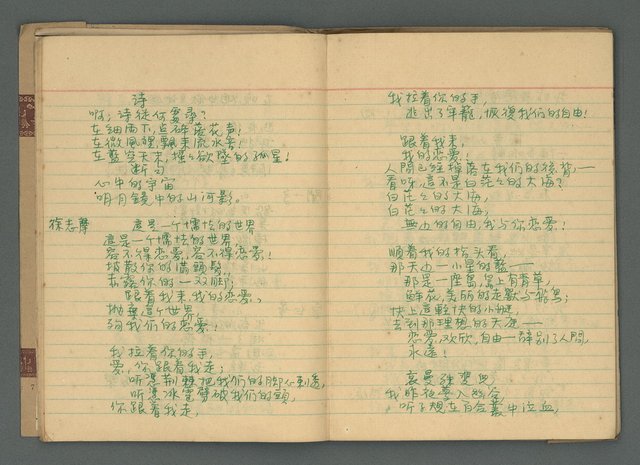 诗
啊，诗徒何處尋？
在細雨下，点碎落花声！
在微風裡，飄來流水音！
在藍空天末，搖搖欲墜的孤星！
断句
心中的宇宙
明月鏡中的山河影。
徐志摩
這是一个懦怯的世界
這是一个懦怯的世界，
容不得恋爱，容不得恋爱！
披散你的滿頭髮，
赤露你的一双脚；
跟着我来，我的恋爱，
抛棄這个世界
殉我们的恋爱！
我拉着你的手，
爱，你跟着我走；
听凴荆棘把我们的脚心刺透，
听凴冰雹劈破我们的頭，
你跟着我走，
我拉着你的手，
逃出了牢籠，恢復我们的自由！
跟着我来，
我的恋爱！
人間已經掉落在我们的後背——
看呀，這不是白茫々的大海？
白茫々的大海，
白茫々的大海，
無边的自由，我与你恋爱！
順着我的指头看，
那天边一小星的藍——
那是一座島，島上有青草，
鲜花，美丽的走獸与飛鸟；
快上這輕快的小艇，
去到那理想的天庭——
恋爱，欢欣，自由——辞别了人間，
永遠！
哀曼殊斐兒
我昨夜夢入幽谷，
听子規在百合叢中泣血，